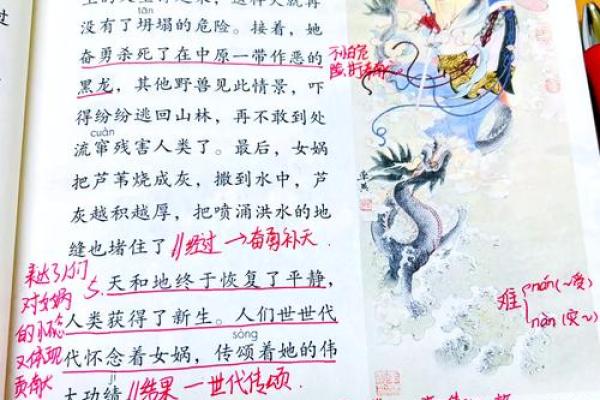 tān
没有了坍塌的危险。接着，她
奋勇杀死了在中原一带作恶的
黑龙，其他野兽见此情景，吓
得纷纷逃回山林，再不敢到处
cuàn
流窜残害人类了。最后，女娲
把芦苇烧成灰，撒到水中，芦
灰越积越厚，把喷涌洪水的地
缝也堵住了 //经过 →奋勇补天.
5. 天和地终于恢复了平静，
人类获得了新生。人们世世代
sòng
代怀念着女娲，传颂着她的伟
jì
大功绩 //结果 —世代传颂.
不怕危
表达了人们
对女娲
的怀念
又体现
贡献大
难
nán(~受)
nàn(灾~)